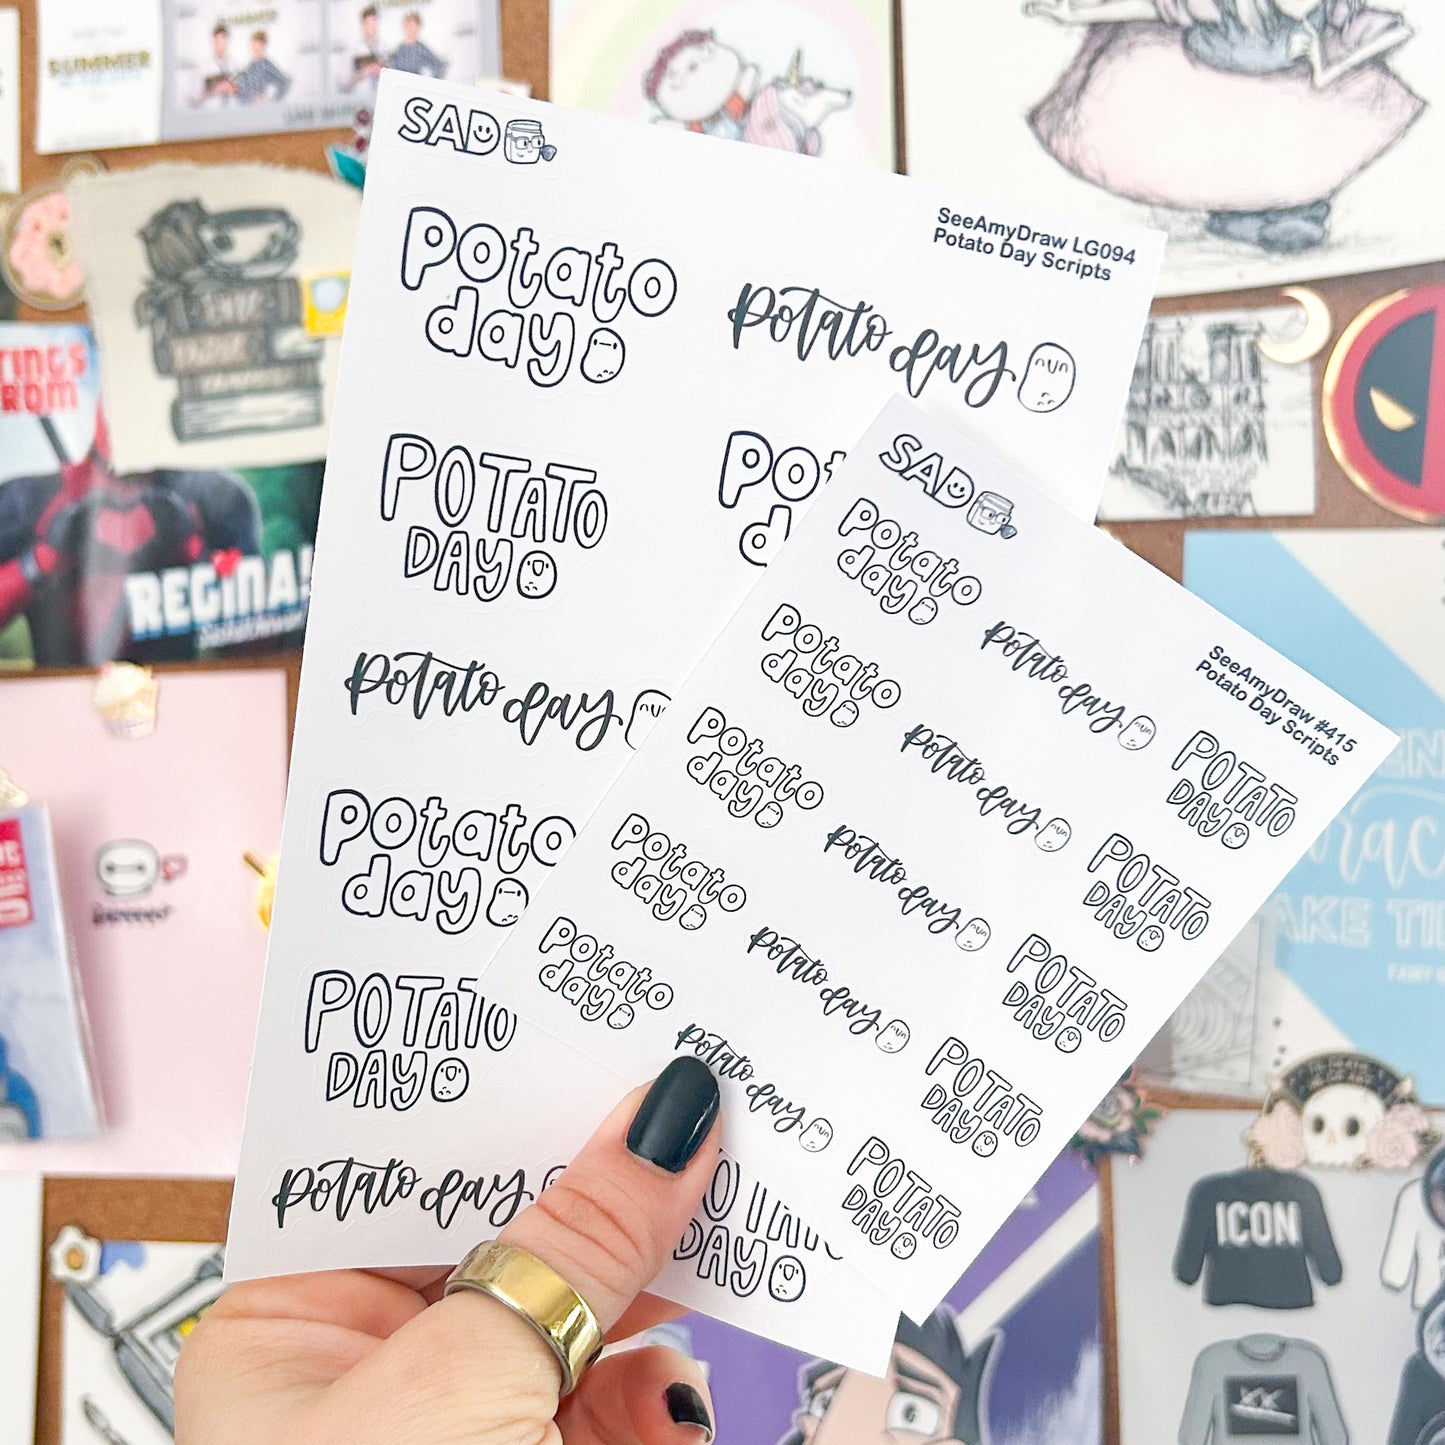 SUMMER
SAD
SeeAmyDraw LG094
Potato Day Scripts
potato
day
potato day
POTATO
DAY
pot
d
potato day
potato
day
POTATO
DAY
potato day
DAY
SAD
SeeAmyDraw #415
Potato Day Scripts
potato
day
potato day
POTATO
DAY
potato
day
potato day
POTATO
DAY
potato
day
potato day
POTATO
DAY
potato
day
potato day
POTATO
DAY
potato
day
potato day
POTATO
DAY
REGINA!
ICON